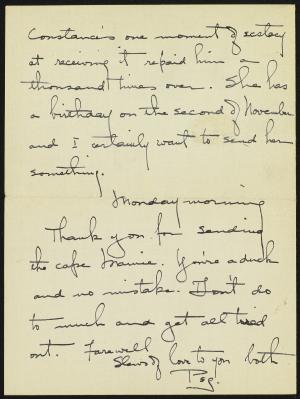 Constance's one moment of ecstacy
at receiving it repaid him a
thousand times over. She has
a birthday on the second of November
and I certainly want to send her
something.
Monday morning
Thank you for sending
the cape Mamie. You're a duck
and no mistake. Don't do
to much and get all tired
out. Farewell
Slews of love to you both
Peg.